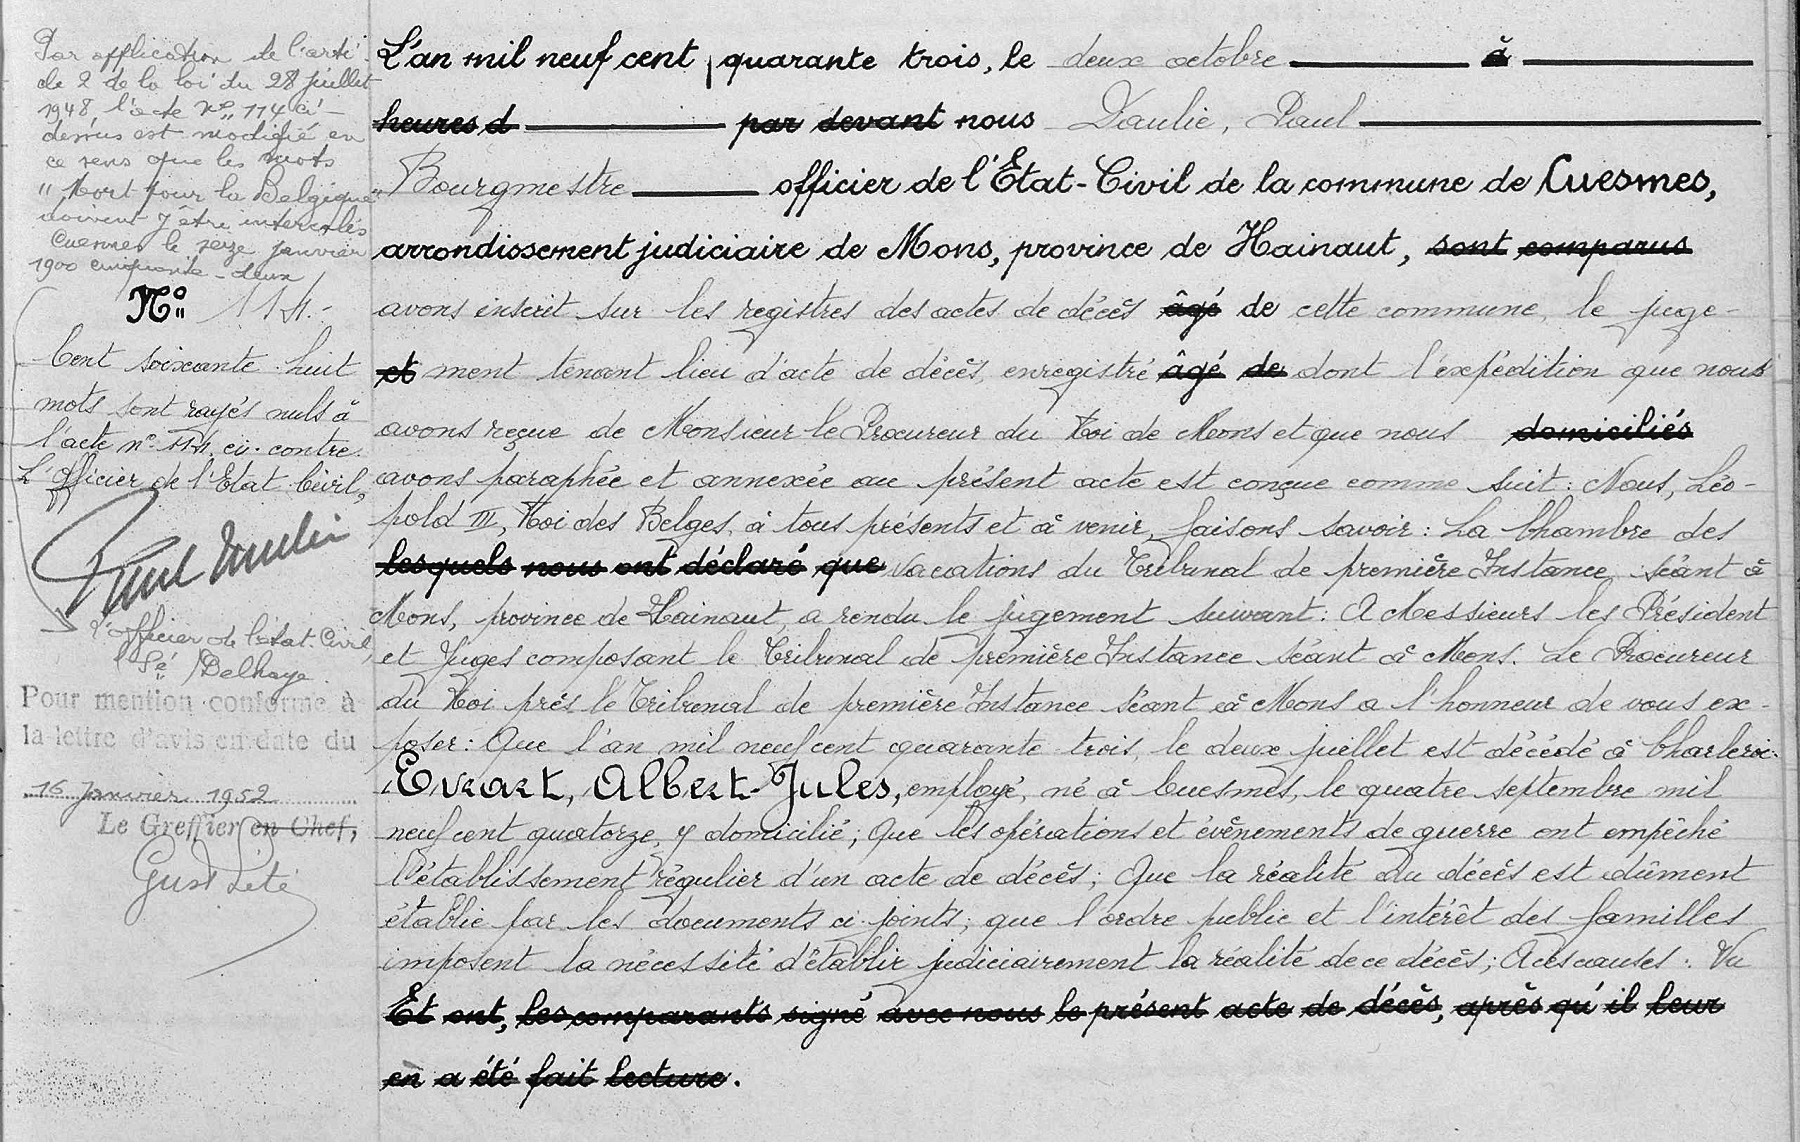 Par application de l'arti-
cle 2 de la loi du 28 juillet
1948, l'acte N° 114 ci-
dessus est modifié en
ce sens que les mots
"Mort pour la Belgique"
doivent y être intercalés
Cuesmes le seize janvier
1900 cinquante-deux
N° 114.-
Cent soixante-huit
mots sont rayés nuls à
l'acte n° 114, ci-contre.
L'Officier de l'Etat Civil,
L'officier de l'état-Civil,
Sé Delhaye.
Pour mention conforme à
la lettre d'avis en date du
16 Janvier 1952
Le Greffier en Chef,
L'an mil neuf cent quarante trois, le deux octobre à
heures d par devant nous Daulie, Paul
Bourgmestre officier de l'Etat-Civil de la commune de Cuesmes,
arrondissement judiciaire de Mons, province de Hainaut, sont comparus
avons inscrit sur les registres des actes de décès âgé de cette commune, le juge-
et ment tenant lieu d'acte de décès, enregistré âgé de dont l'expédition que nous
avons reçue de Monsieur le Procureur du Roi de Mons et que nous domiciliés
avons paraphée et annexée au présent acte est conçue comme suit: Nous, Léo-
pold III, Roi des Belges, à tous présents et à venir, faisons savoir: La Chambre des
lesquels nous ont déclaré que vacations du Tribunal de première Instance, séant à
Mons, province de Hainaut, a rendu le jugement suivant: A Messieurs les Président
et Juges composant le Tribunal de première Instance séant à Mons. Le Procureur
du Roi près le Tribunal de première Instance séant à Mons a l'honneur de vous ex-
poser: Que l'an mil neuf cent quarante-trois, le deux juillet est décédé à Charleroi:
Evrart, Albert-Jules, employé, né à Cuesmes, le quatre septembre mil
neuf cent quatorze, y domicilié; Que les opérations et évènements de guerre ont empêché
l'établissement régulier d'un acte de décès; Que la réalité du décès est dûment
établie par les documents ci-joints; que l'ordre public et l'intérêt des familles
imposent la nécessité d'établir judiciairement la réalité de ce décès; A ces causes: Vu
Et ont, les comparants signé avec nous le présent acte de décès, après qu'il leur
en a été fait lecture.